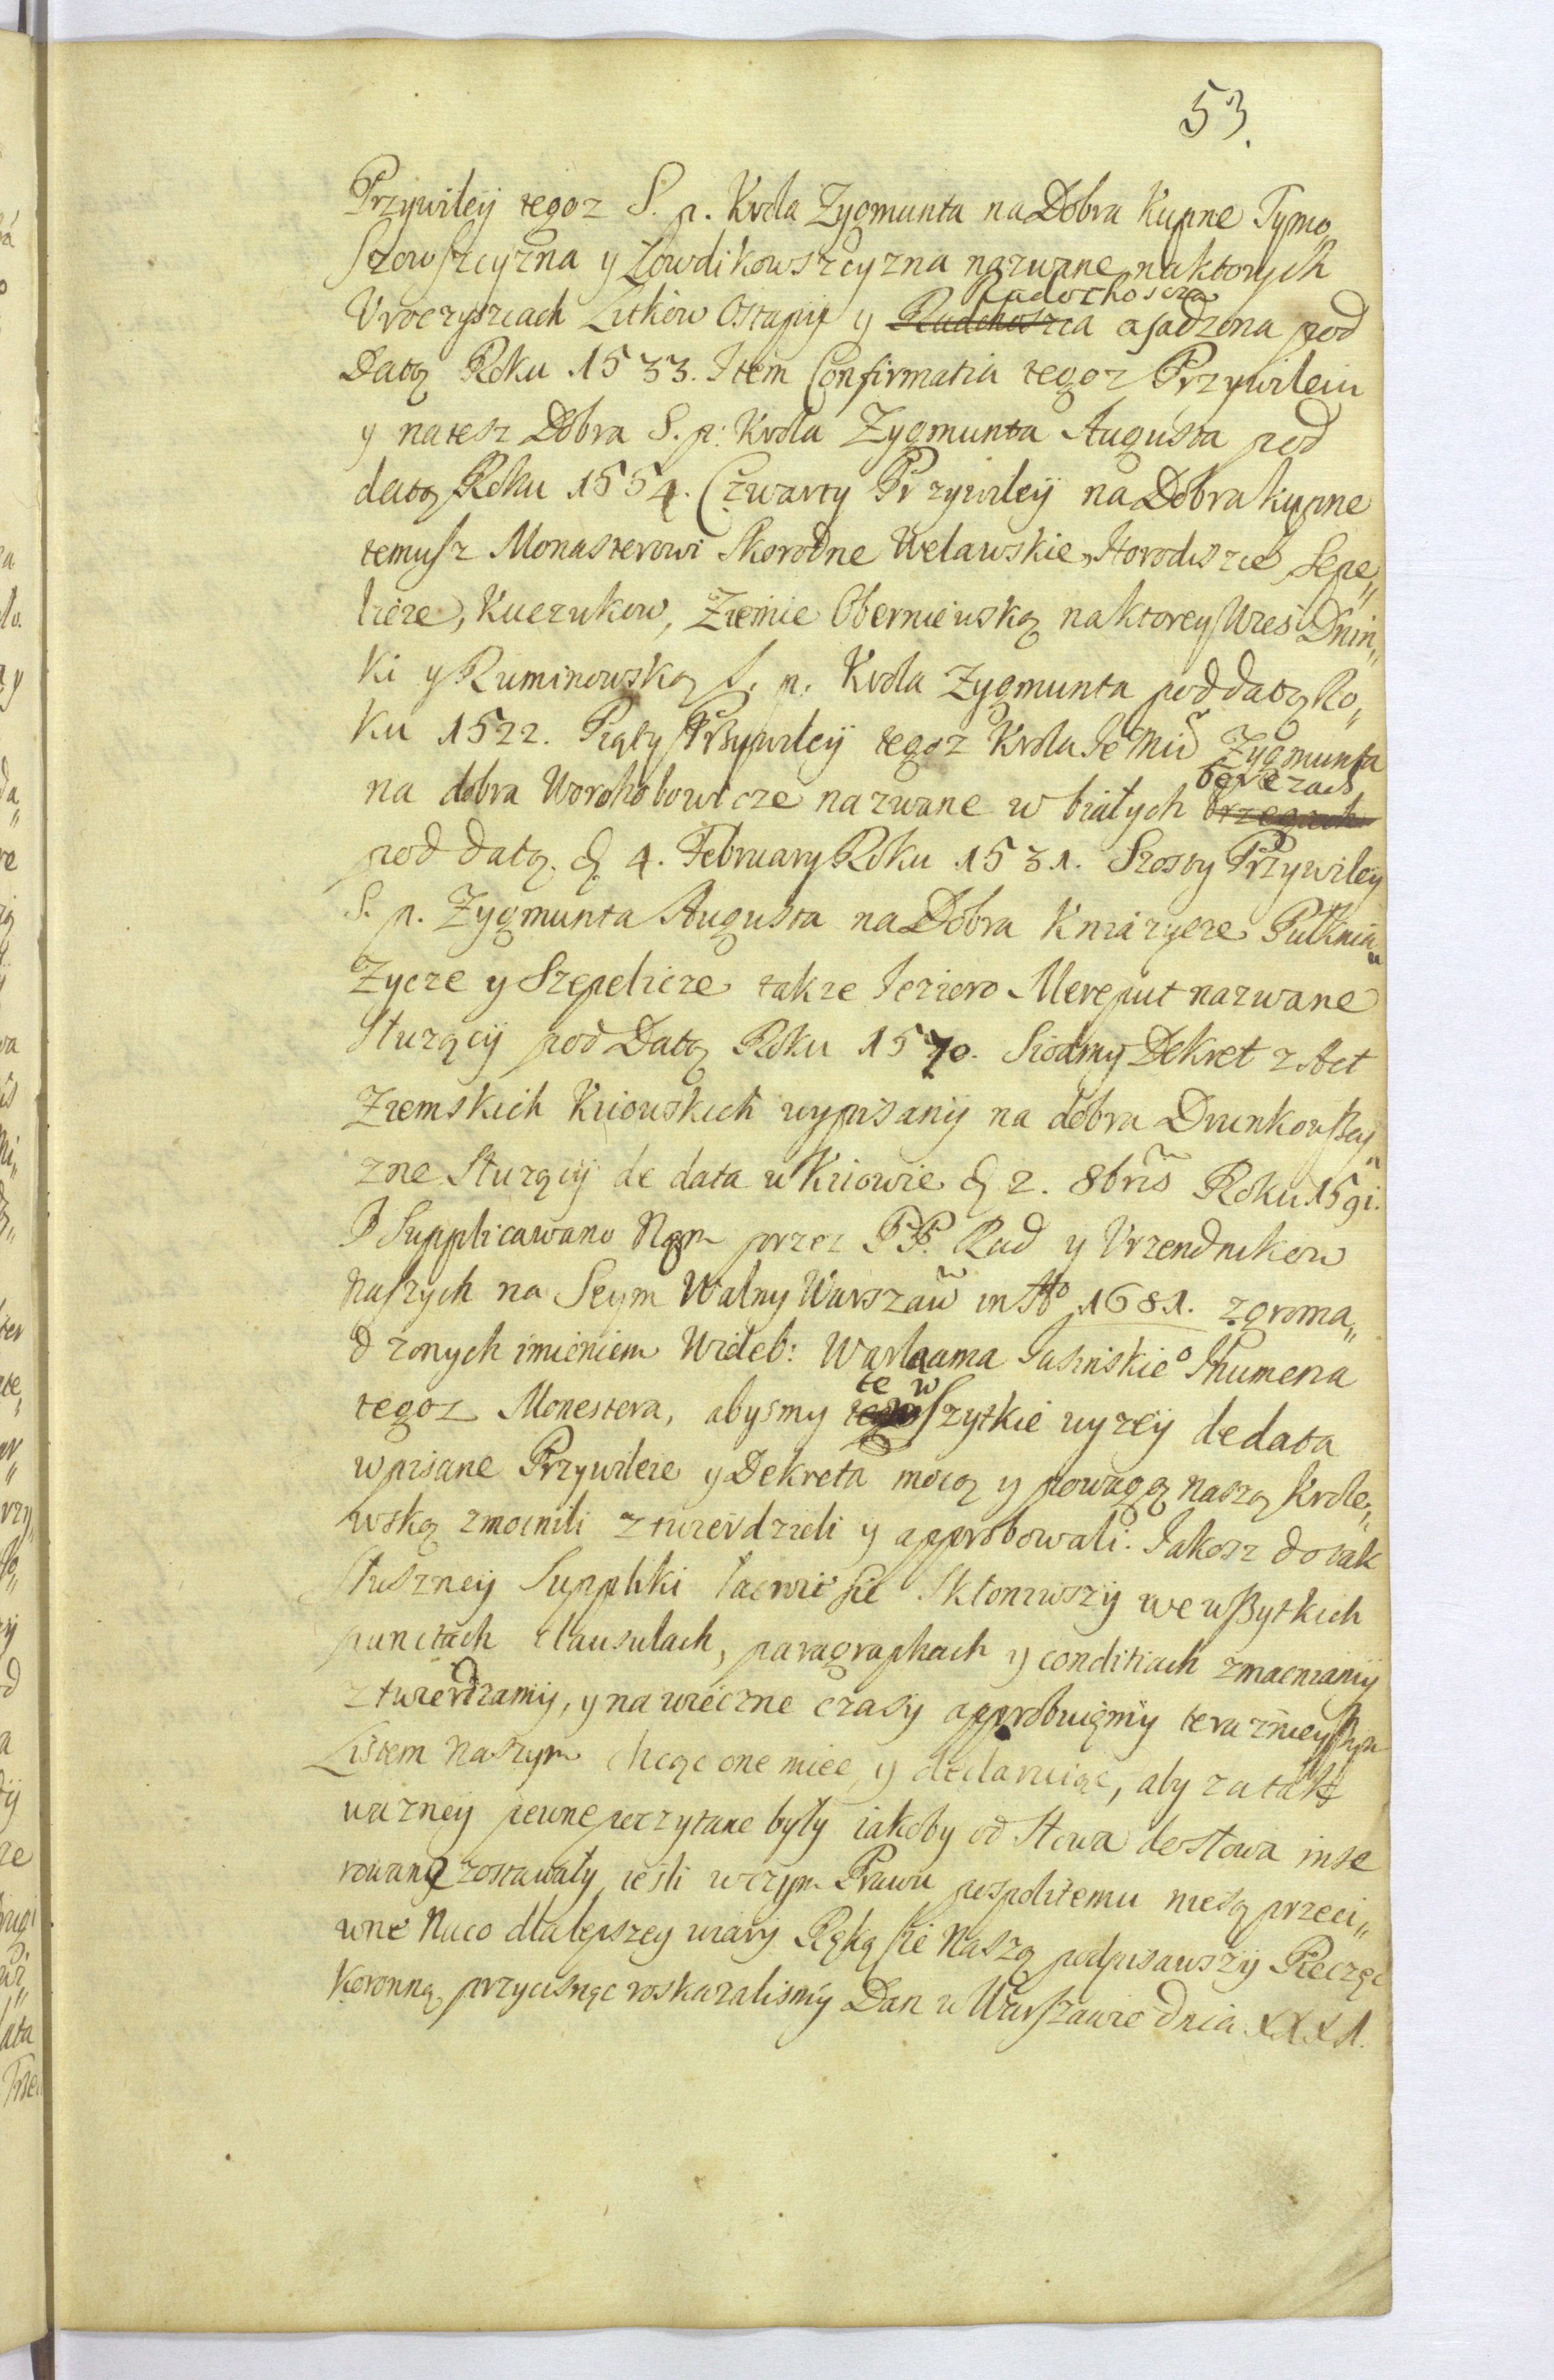 53.
Przywiley tegoz S. p. Krola Zygmunta na Dobra Kupne Tymo„
szowszczyzna y Łowdikowszczyzna nazwane na ktorych
Vroczyszczach Litkow Ostapiy y Radochoszcza osadzona pod
Datą Roku 1533. Item Confirmatia tegoz Przywileiu
y na tesz Dobra S. p: Krola Zygmunta Augusta pod
datą Roku 1554. Czwarty Przywiley na Dobra kupne
temusz Monasterowi Skorodne Welawskie, Horodiszcze, Sepe„
licze, Kuczukow, Ziemie Oberniewską na ktorey Wies Dnin„
ki y Ruminowską S. p. Krola Zygmunta pod datą Ro„
ku 1522. Piąty Przywiley tegoz Krola Je Mci Zygmunta
na dobra Worohobowicze nazwane w białych berezach
pod datą. d. 4. February Roku 1531. Szosty Przywiley
S. p. Zygmunta Augusta na Dobra Kniazycze Putknia„
zycze y Szepelicze takze Jezioro Mereput nazwane
słuzący pod Datą Roku 1570. Siodmy Dekret z Act
Ziemskich Kiiowskich wypisany na dobra Drunkowszczy„
zne Słuzący de data w Kiiowie d. 2. 8bris Roku 1591.
I Supplicawano Nam przez PP. Rad y Vrzendnikow
Naszych na Seym Walny Warszaw in Ao 1681. zgroma„
dzonych imieniem Wieleb: Warlaama Jasinskieo Ihumena
tegoz Monestera, abysmy te wszytkie wyzey de data
wpisane Przywileie y Dekreta mocą y powagą naszą Krole„
wską zmocnili ztwierdzieli y approbowali. Jakosz do tak
słuszney Suppliki łacwie się Skłoniwszy we wszytkich
punctach clausulach, paragraphach y conditiach zmacniamy
ztwierdzamy, y na wieczne czasy approbuięmy teraznieyszym
Listem Naszym chcąc one miec, y declaruiąc, aby za tak
wazney pewne poczytane były iakoby od słowa do słowa inse
rowane zostawały, iesli w czym Prawu pospolitemu niesą przeci„
wne Naco dla lepszey wiary Ręką się Naszą podpisawszy Pieczęć
Koronną, przycisnąc roskazalismy Dan w Warszawie dnia XXX1.